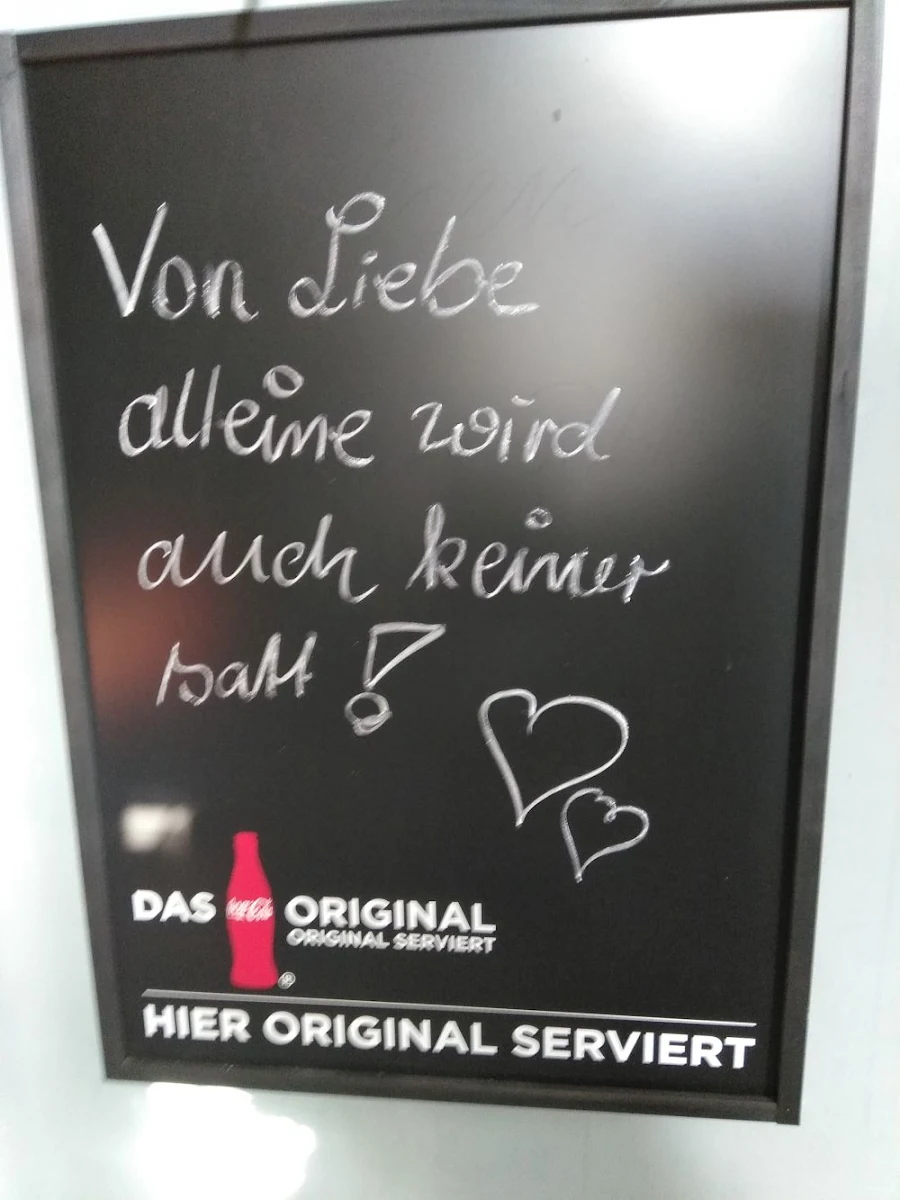 Von Liebe
alleine wird
auch keiner
satt!
DAS Coca-Cola ORIGINAL
ORIGINAL SERVIERT
®
HIER ORIGINAL SERVIERT